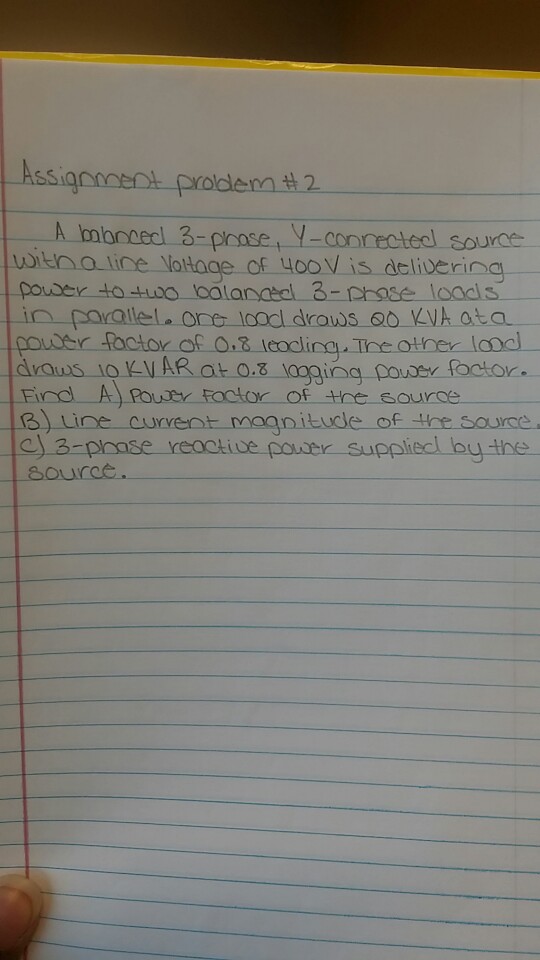 Assignment problem #2
A balanced 3-phase, Y-connected source
with a line voltage of 400V is delivering
power to two balanced 3-phase loads
in parallel. One load draws 20 KVA at a
power factor of 0.8 leading. The other load
draws 10 KVAR at 0.8 lagging power factor.
Find A) Power Factor of the source
B) Line current magnitude of the source.
C) 3-phase reactive power supplied by the
source.